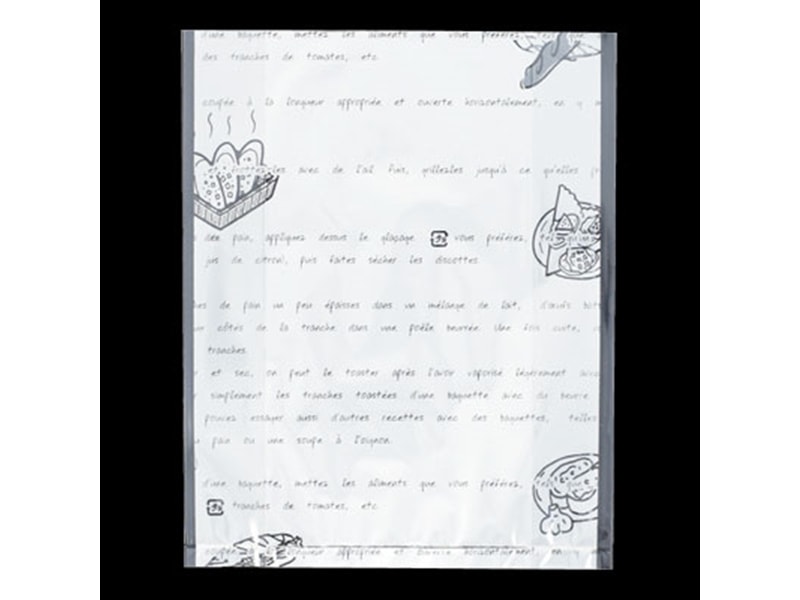 d'une baguette, mettez les aliments que vous préférez,
des tranches de tomates, etc.
coupée à la longueur appropriée et ouverte horizontalement, en y
et frottez-les avec de l'ail puis, grillez-les jusqu'à ce qu'elles
pain, appliquez dessus le glaçage プラ vous préférez, tel
jus de citron), puis faites sécher les biscottes.
de pain un peu épaisses dans un mélange de lait, d'œufs
côtés de la tranche dans une poêle beurrée. Une fois cuite,
tranches.
et sec, on peut le toaster après l'avoir vaporisé légèrement
simplement les tranches toastées d'une baguette avec du beurre
pouvez essayer aussi d'autres recettes avec des baguettes, telles
pain ou une soupe à l'oignon.
d'une baguette, mettez les aliments que vous préférez, tels que
プラ tranches de tomates, etc.
longueur appropriée et ouverte horizontalement, en y